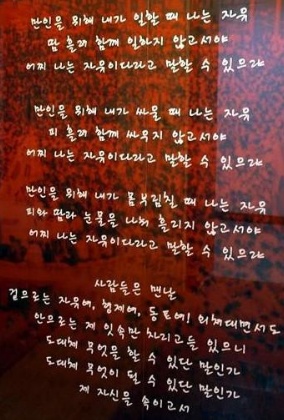 만인을 위해 내가 일할 때 나는 자유
땀 흘려 함께 일하지 않고서야
어찌 나는 자유이다라고 말할 수 있으랴
만인을 위해 내가 싸울 때 나는 자유
피 흘려 함께 싸우지 않고서야
어찌 나는 자유이다라고 말할 수 있으랴
만인을 위해 내가 몸부림칠 때 나는 자유
피와 땀과 눈물을 나눠 흘리지 않고서야
어찌 나는 자유이다라고 말할 수 있으랴
사람들은 맨날
겉으로는 자유여, 형제여, 동포여! 외쳐대면서도
안으로는 제 잇속만 차리고들 있으니
도대체 무엇을 할 수 있단 말인가
도대체 무엇이 될 수 있단 말인가
제 자신을 속이고서